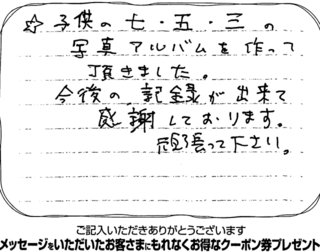 ☆子供の七・五・三の
写真アルバムを作って
頂きました。
今後の記録が出来て
感謝しております。
頑張って下さい。
ご記入いただきありがとうございます
メッセージをいただいたお客さまにもれなくお得なクーポン券プレゼント